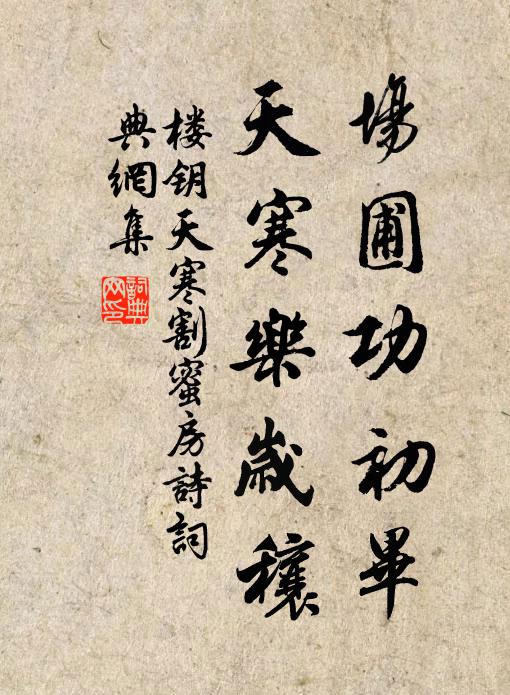 場圃功初畢
天寒樂歲穰
楼钥天寒割蜜房詩詞
典網集
詞典
网印